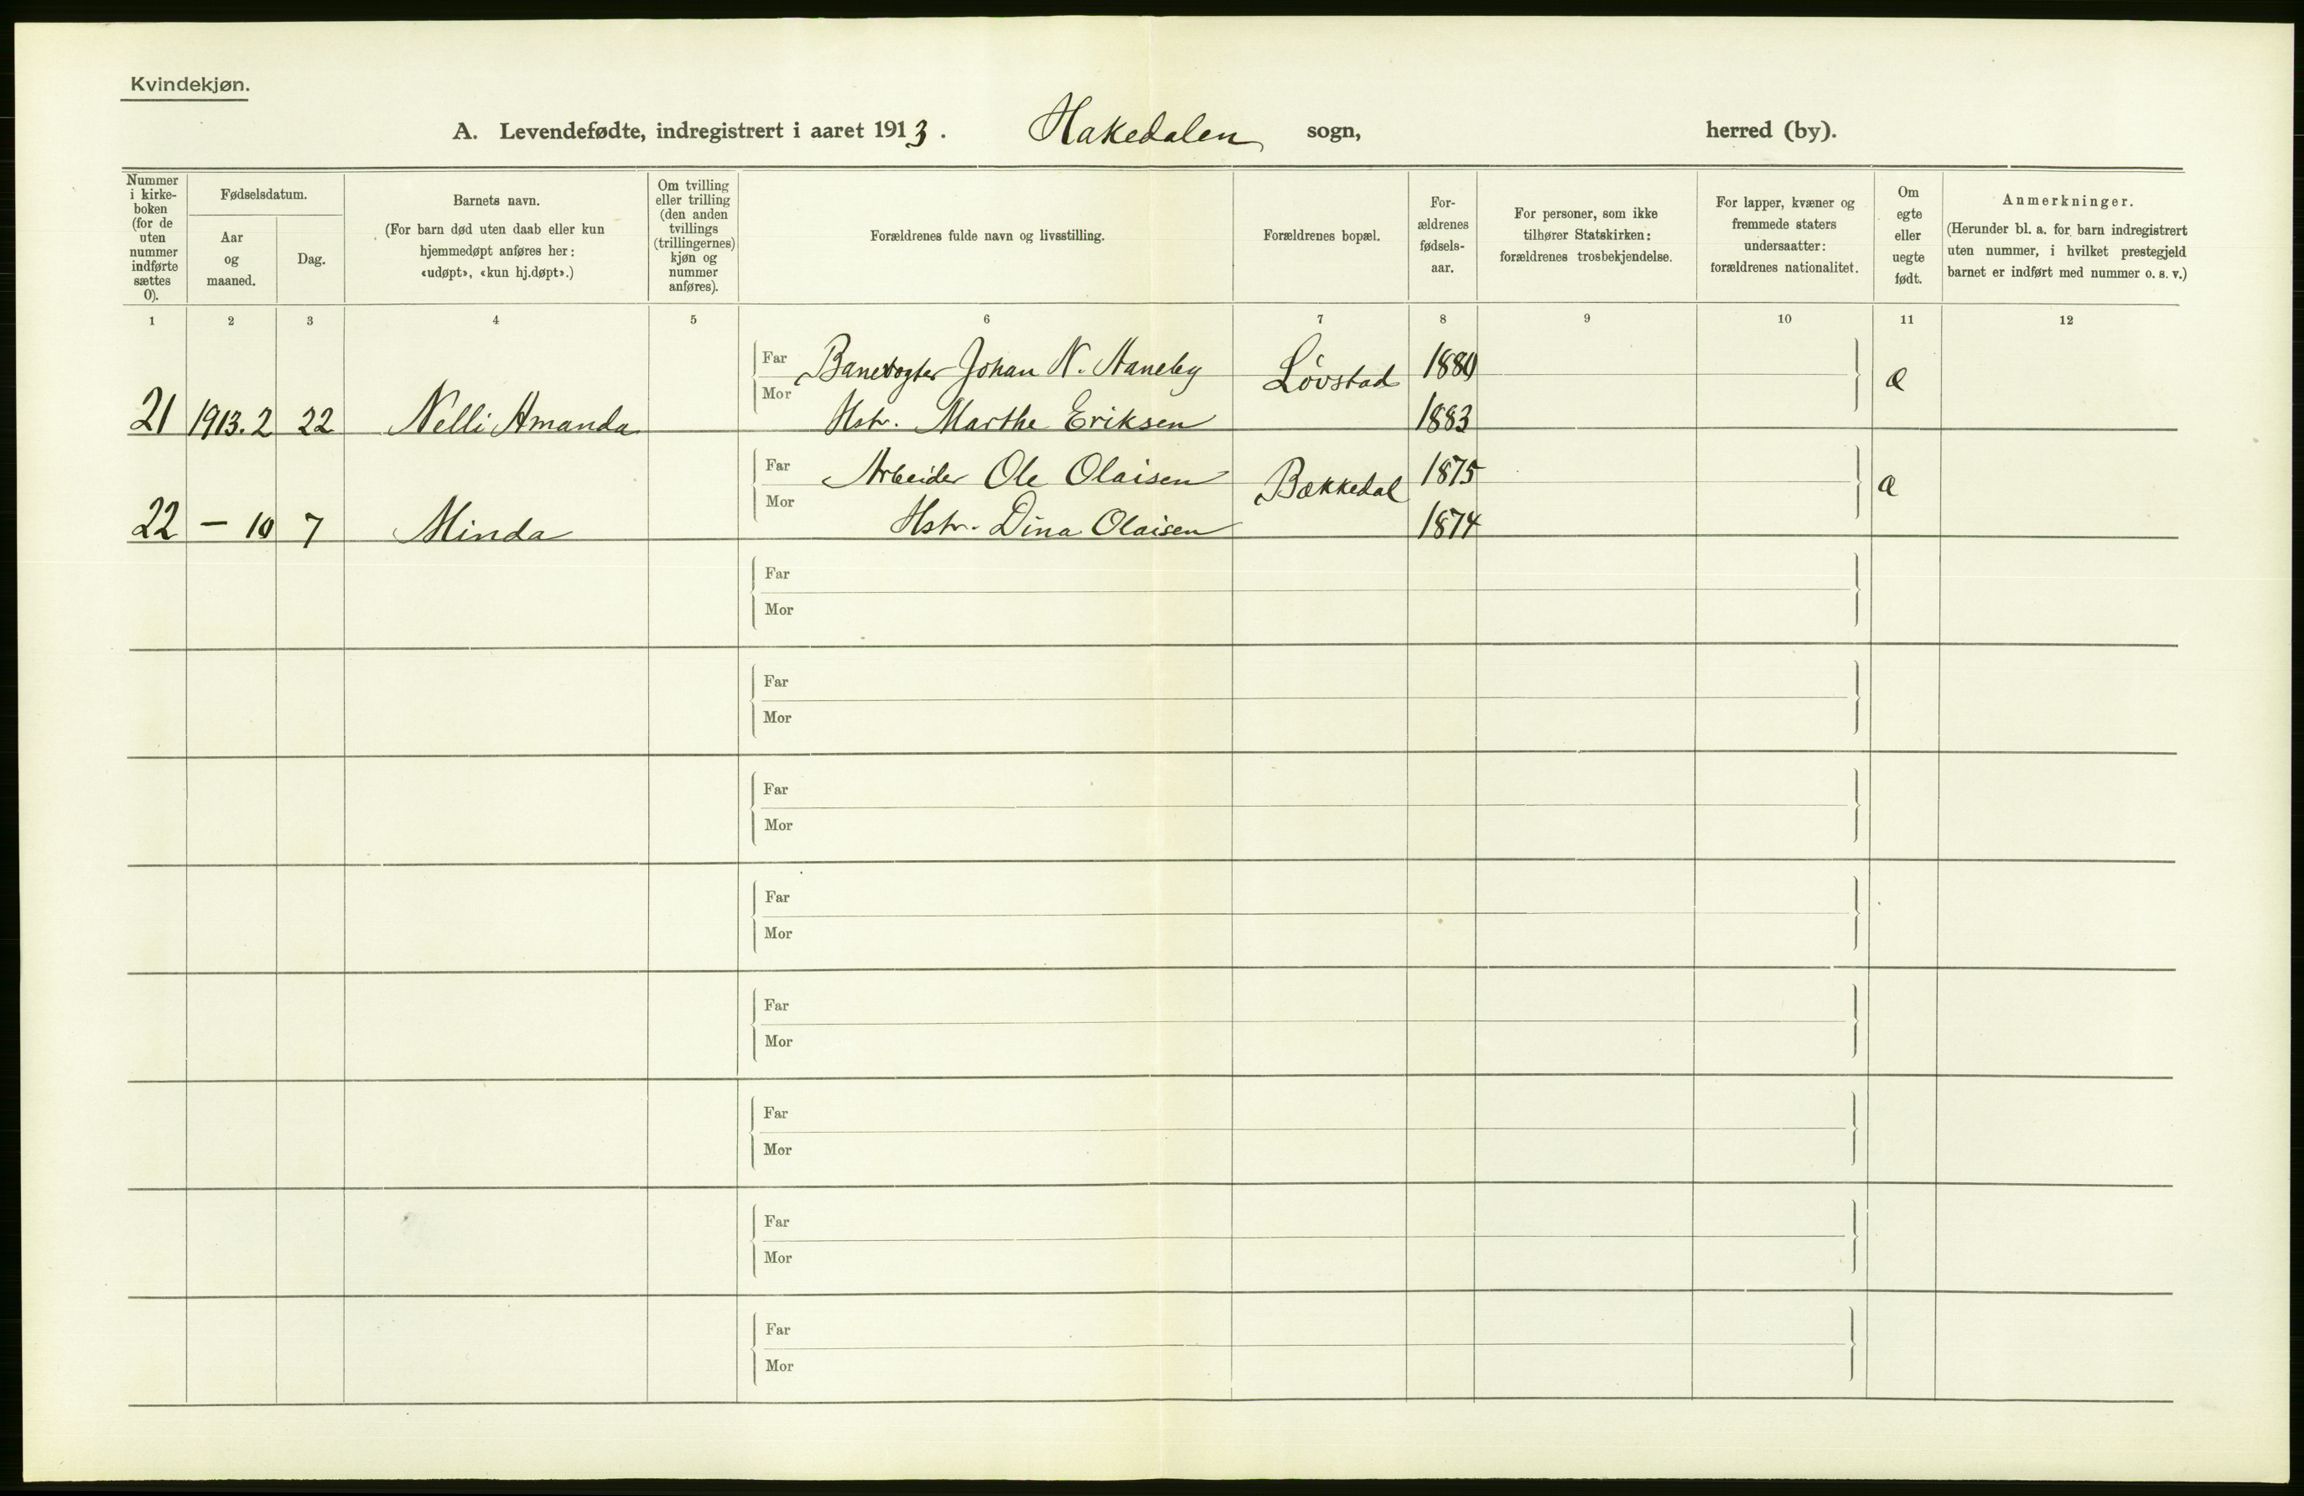 Kvindekjøn.
A. Levendefødte, indregistrert i aaret 1913. Hakedalen sogn, herred (by).
Nummer i kirke-boken (for de uten nummer indførte sættes 0).
Fødselsdatum.
Aar og maaned.
Dag.
Barnets navn.
(For barn død uten daab eller kun hjemmedøpt anføres her: «udøpt», «kun hj.døpt».)
Om tvilling eller trilling (den anden tvillings (trillingernes) kjøn og nummer anføres).
Forældrenes fulde navn og livsstilling.
Forældrenes bopæl.
For-ældrenes fødsels-aar.
For personer, som ikke tilhører Statskirken: forældrenes trosbekjendelse.
For lapper, kvæner og fremmede staters undersaatter: forældrenes nationalitet.
Om egte eller uegte født.
Anmerkninger.
(Herunder bl. a. for barn indregistrert uten nummer, i hvilket prestegjeld barnet er indført med nummer o. s. v.)
1 2 3 4 5 6 7 8 9 10 11 12
Far Banevogter Johan N. Haneby Løvstad 1880 æ
21 1913.2 22 Nelli Amanda Mor Hstr. Marthe Eriksen 1883
Far Arbeider Ole Olaisen Bækkedal 1875 æ
22 — 10 7 Minda Mor Hstr. Dina Olaisen 1874
Far
Mor
Far
Mor
Far
Mor
Far
Mor
Far
Mor
Far
Mor
Far
Mor
Far
Mor